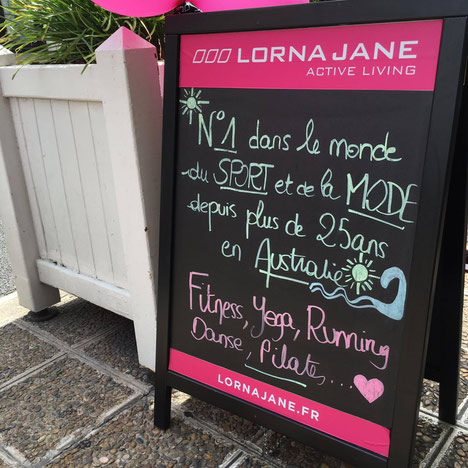 LORNA JANE
ACTIVE LIVING
N°1 dans le monde
du SPORT et de la MODE
depuis plus de 25ans
en Australie
Fitness, Yoga, Running
Danse, Pilate, ...
LORNAJANE.FR